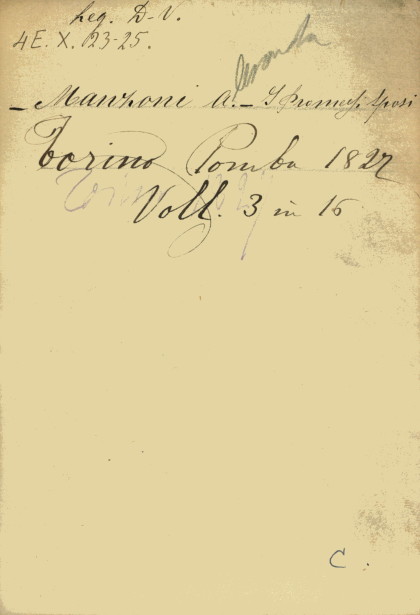 leg. D-V.
4 E. X. 23-25.
- Manzoni A. - I Promes. Sposi
Torino Pomba 1827
Voll. 3 in 16
C.